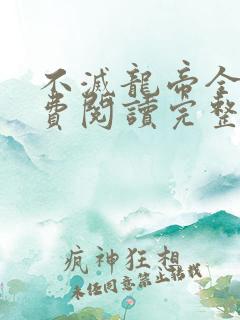 不滅龍帝全
費閱讀完整
瘋神狂想
未经同意禁止转载